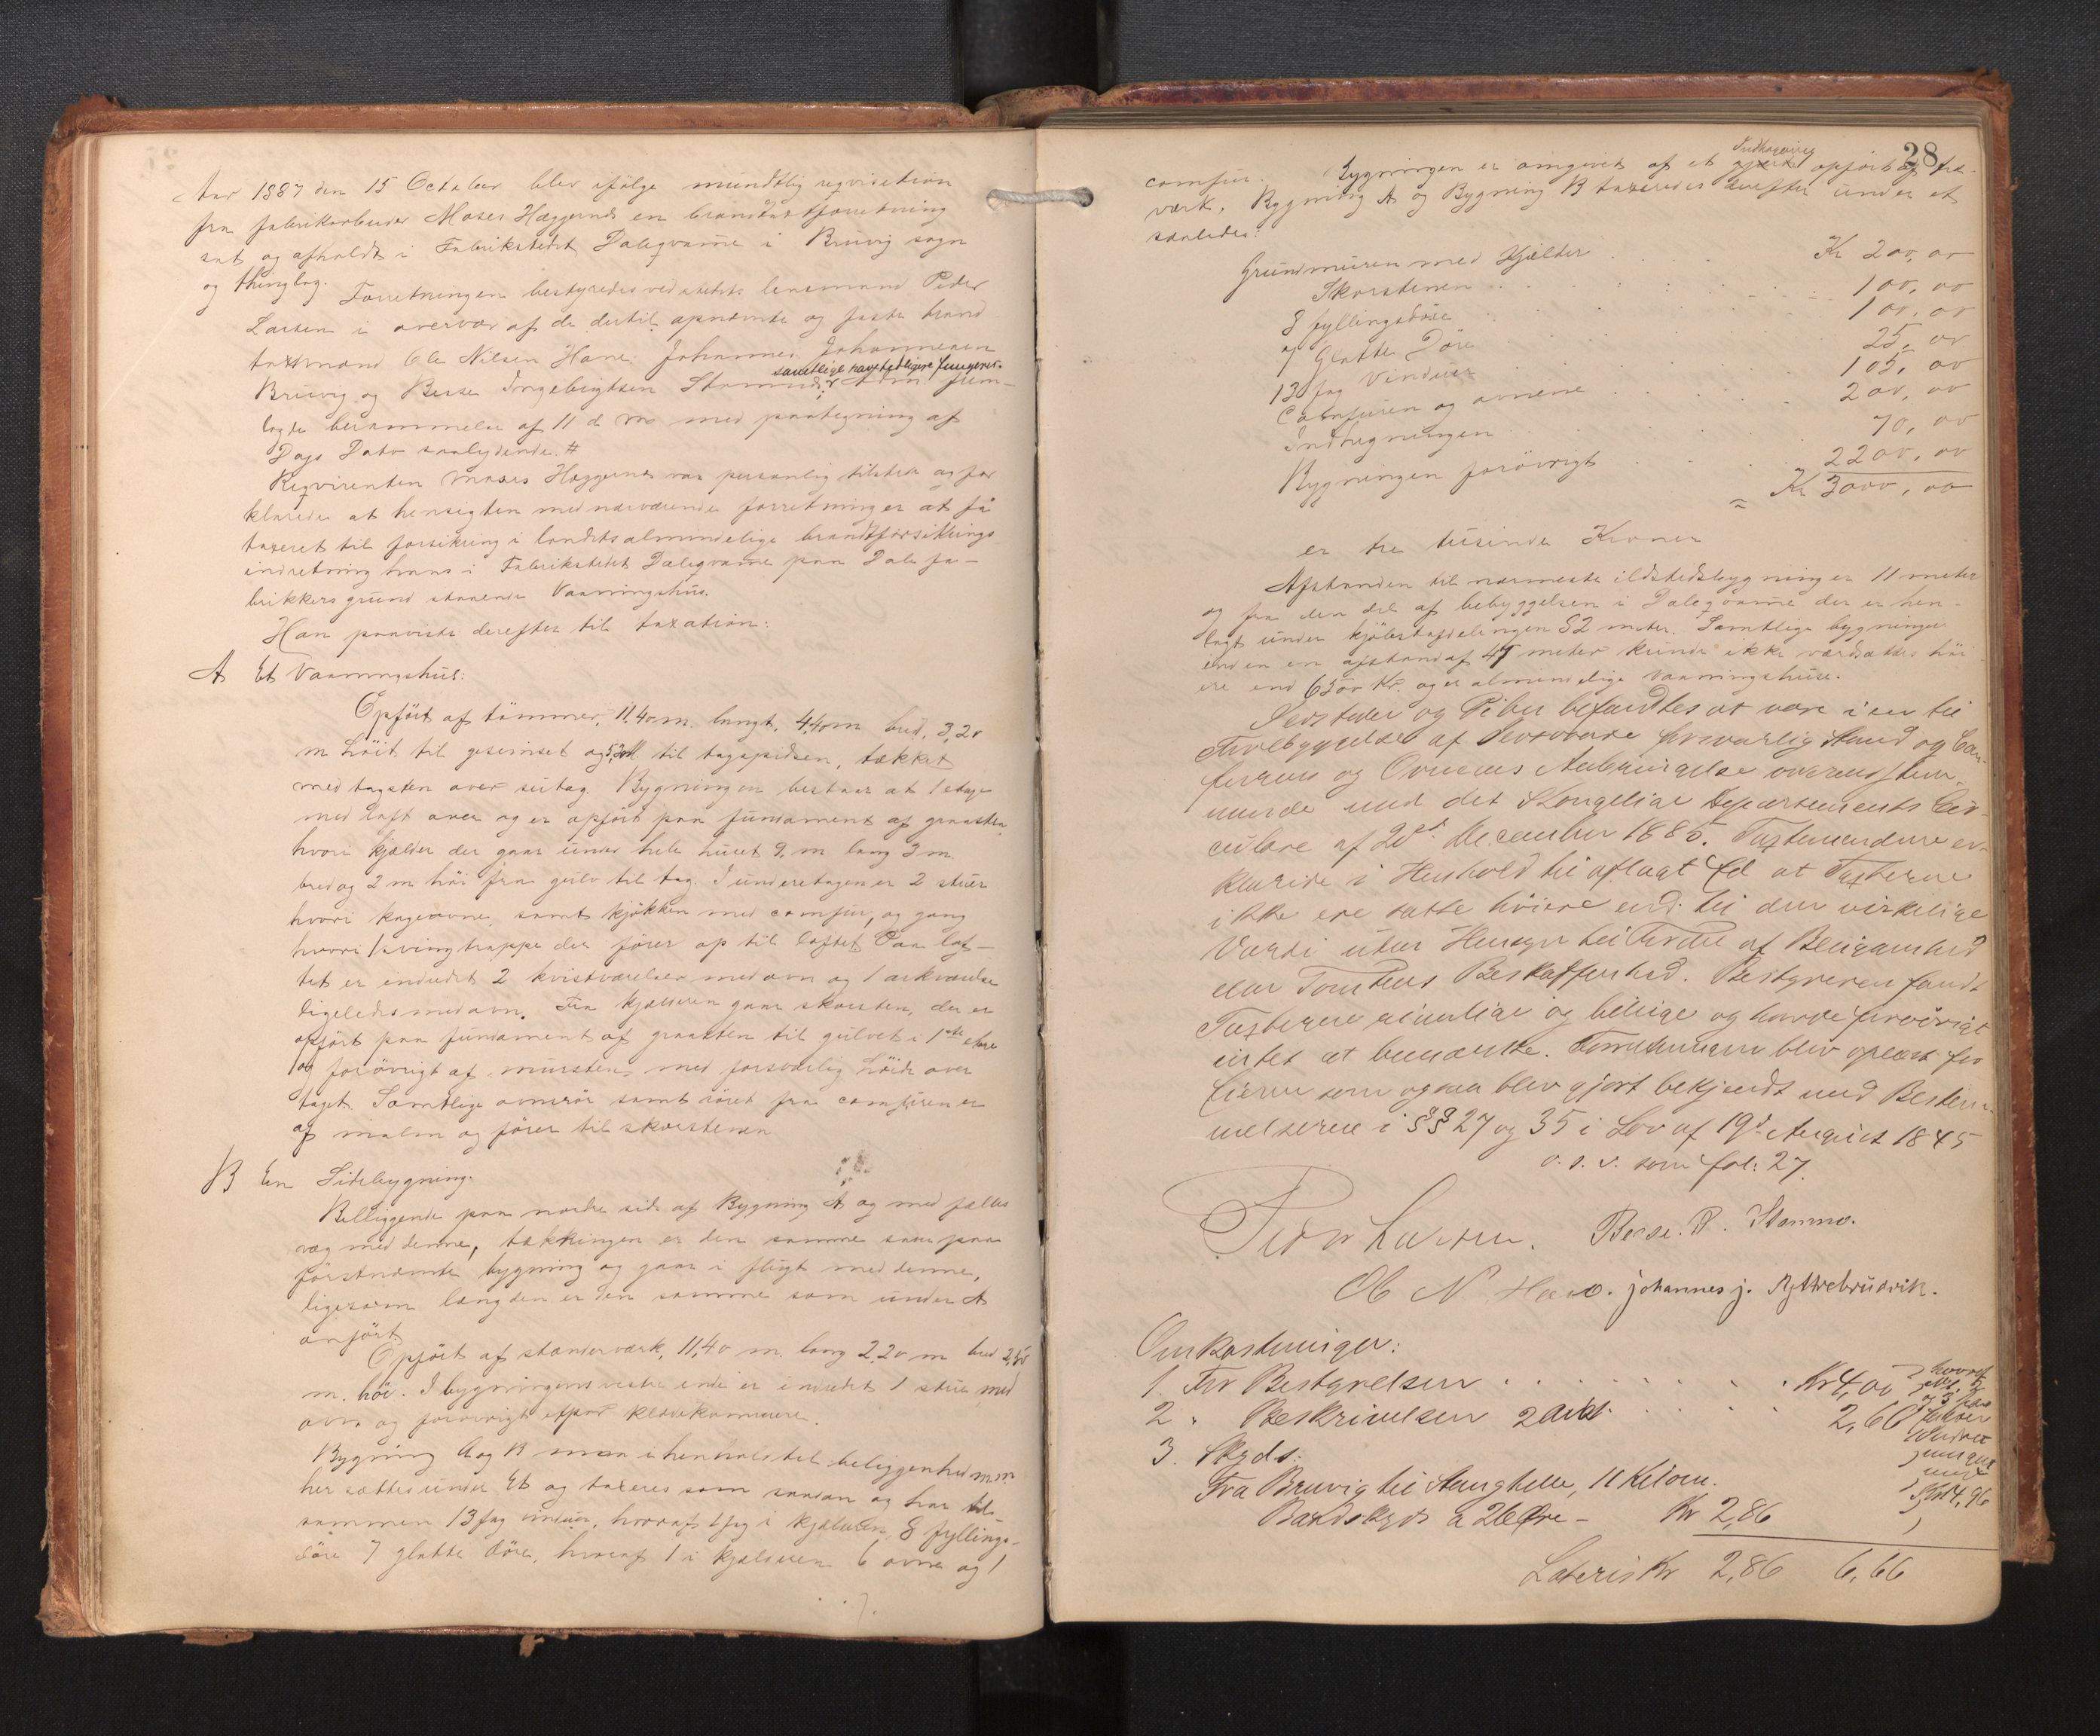 Aar 1887 den 15 October blev ifølge mundtlig reqvisition
fra fabrikarbeider Moses Haggernes en brandtaxtforretning
sat og afholdt i Fabrikstedet Daleqvarne i Bruvig sogn
og thinglag.
Forretningen bestyredes ved stedets lensmand Peder
Larsen i overvær af de dertil opnævnte og faste brand
taxtmænd Ole Nilsen Hane, Johannes Johannesen
samtlige havstedligere fungerer
Bruvig og Berse Ingebrigtsen Stamnes. Adm frem-
lagde berammelse af 11 d. m. med paategning af
Dags Dato saalydende. #
Reqvirenten Moses Haggernes var personlig tilstede og for
klarede at hensigten med nærværende forretning er at få
taxeret til forsikring i landets almindelige brandforsikrings
indretning hans i Fabrikstedet Daleqvarne paa Dale fa-
brikkers grund staaende Vaaningshus.
Han paaviste derefter til taxation:
A Et Vaaningshus:
Opført af tømmer, 11,40 m. langt, 4,40 m bred, 3,20
m høit til gesimset og 5,30 m til tagspidsen, tækket
med tagsten over sutag. Bygningen bestaar af 1 etage
med loft over og er opført paa fundament af graasten,
hvori kjælder der gaar under hele huset 9, m lang 3 m.
bred og 2 m høi fra gulv til tag. I underetagen er 2 stuer
hvori kageovne, samt kjøkken med comfur, og gang
hvori 1 svingtrappe der fører op til loftet. Paa lof-
tet er indredet 2 kvistværelser med ovn og 1 arkværelse
ligeledes med ovn. Fra kjælderen gaar skorsten, der er
opført paa fundament af graasten til gulvet i 1ste etage
og forøvrigt af mursten, med forsvarlig høide over
taget. Samtlige ovnsrør samt røret fra comfuren er
af malm og fører til skorstenen
B En Sidebygning.
Beliggende paa nordre side af Bygning A og med fælles
væg med denne, tækkingen er den samme som paa
førstnævnte bygning og gaar i flugt med denne,
ligesom længden er den samme som under A
anført.
Opført af stænderværk, 11,40 m. lang 2,20 m bred 2,50
m. høi. I bygningens vestre ende er indredet 1 stue med
ovn og forøvrigt klædekammere.
Bygning A og B maa i henhold til beliggenhed m.m.
her sættes under Et og taxeres som saadan og har til-
sammen 13 fag vinduer, hvoraf 1 fag i kjælderen, 8 fyllings-
døre 7 glatte døre, hvoraf 1 i kjælderen 6 ovne og 1
28
comfur. Bygningen er omgivet af et Indhegning opført af træ-
værk. Bygning A og Bygning B taxeredes derefter under et
saaledes:
Grundmuren med Kjælder Kr 200,00
Skorstenen 100,00
8 fyllingsdøre 100,00
7 Glatte Døre 25,00
13 fag Vinduer 105,00
Comfuren og ovnene 200,00
Indhegningen 70,00
Bygningen forøvrigt 2200,00
= Kr 3000,00
er tre tusinde Kroner
Afstanden til nærmeste ildstedsbygning er 11 meter
og fra den del af bebyggelsen i Daleqvarne der er hen-
lagt under kjøbstadelingen 52 meter. Samtlige bygninger
inden en afstand af 45 meter kunde ikke værdsættes høi
ere end 6500 Kr. og er almindelige Vaaningshuse.
Ildsteder og Piber befandtes at være i en til
Forebyggelse af Ildsvaade forsvarlig Stand og Com-
furens og Ovnenes Anbringelse overensstem-
mende med det Kongelige Departements Cir-
culære af 20de December 1885. Taxtmændene er-
klærede i Henhold til aflagt Ed at Taxterne
ikke ere satte høiere end til den virkelige
Værdi uden Hensyn til Værdie af Beqvemhed
eller Tomtens Beskaffenhed. Bestyreren fandt
Taxterne rimelige og billige og havde forøvrigt
intet at bemærke. Forretningen blev oplæst for
Eieren som ogsaa blev gjort bekjendt med Bestem-
melserne i §§ 27 og 35 i Lov af 19d August 1845
o. s. v. som fol: 27.
Peder Larsen. Berse. I. Stamnes.
Ole N Hane. johannes j. Yttrebrudvik.
Omkostninger:
1. For Bestyrelsen Kr 4,00
2 " Beskrivelsen 2 Ark 2,60
3. Skyds:
Fra Bruvig til Stanghelle, 11 Kilom.
Baadskyds a 26 Øre - Kr 2,86
Lateris Kr 2,86 6,66